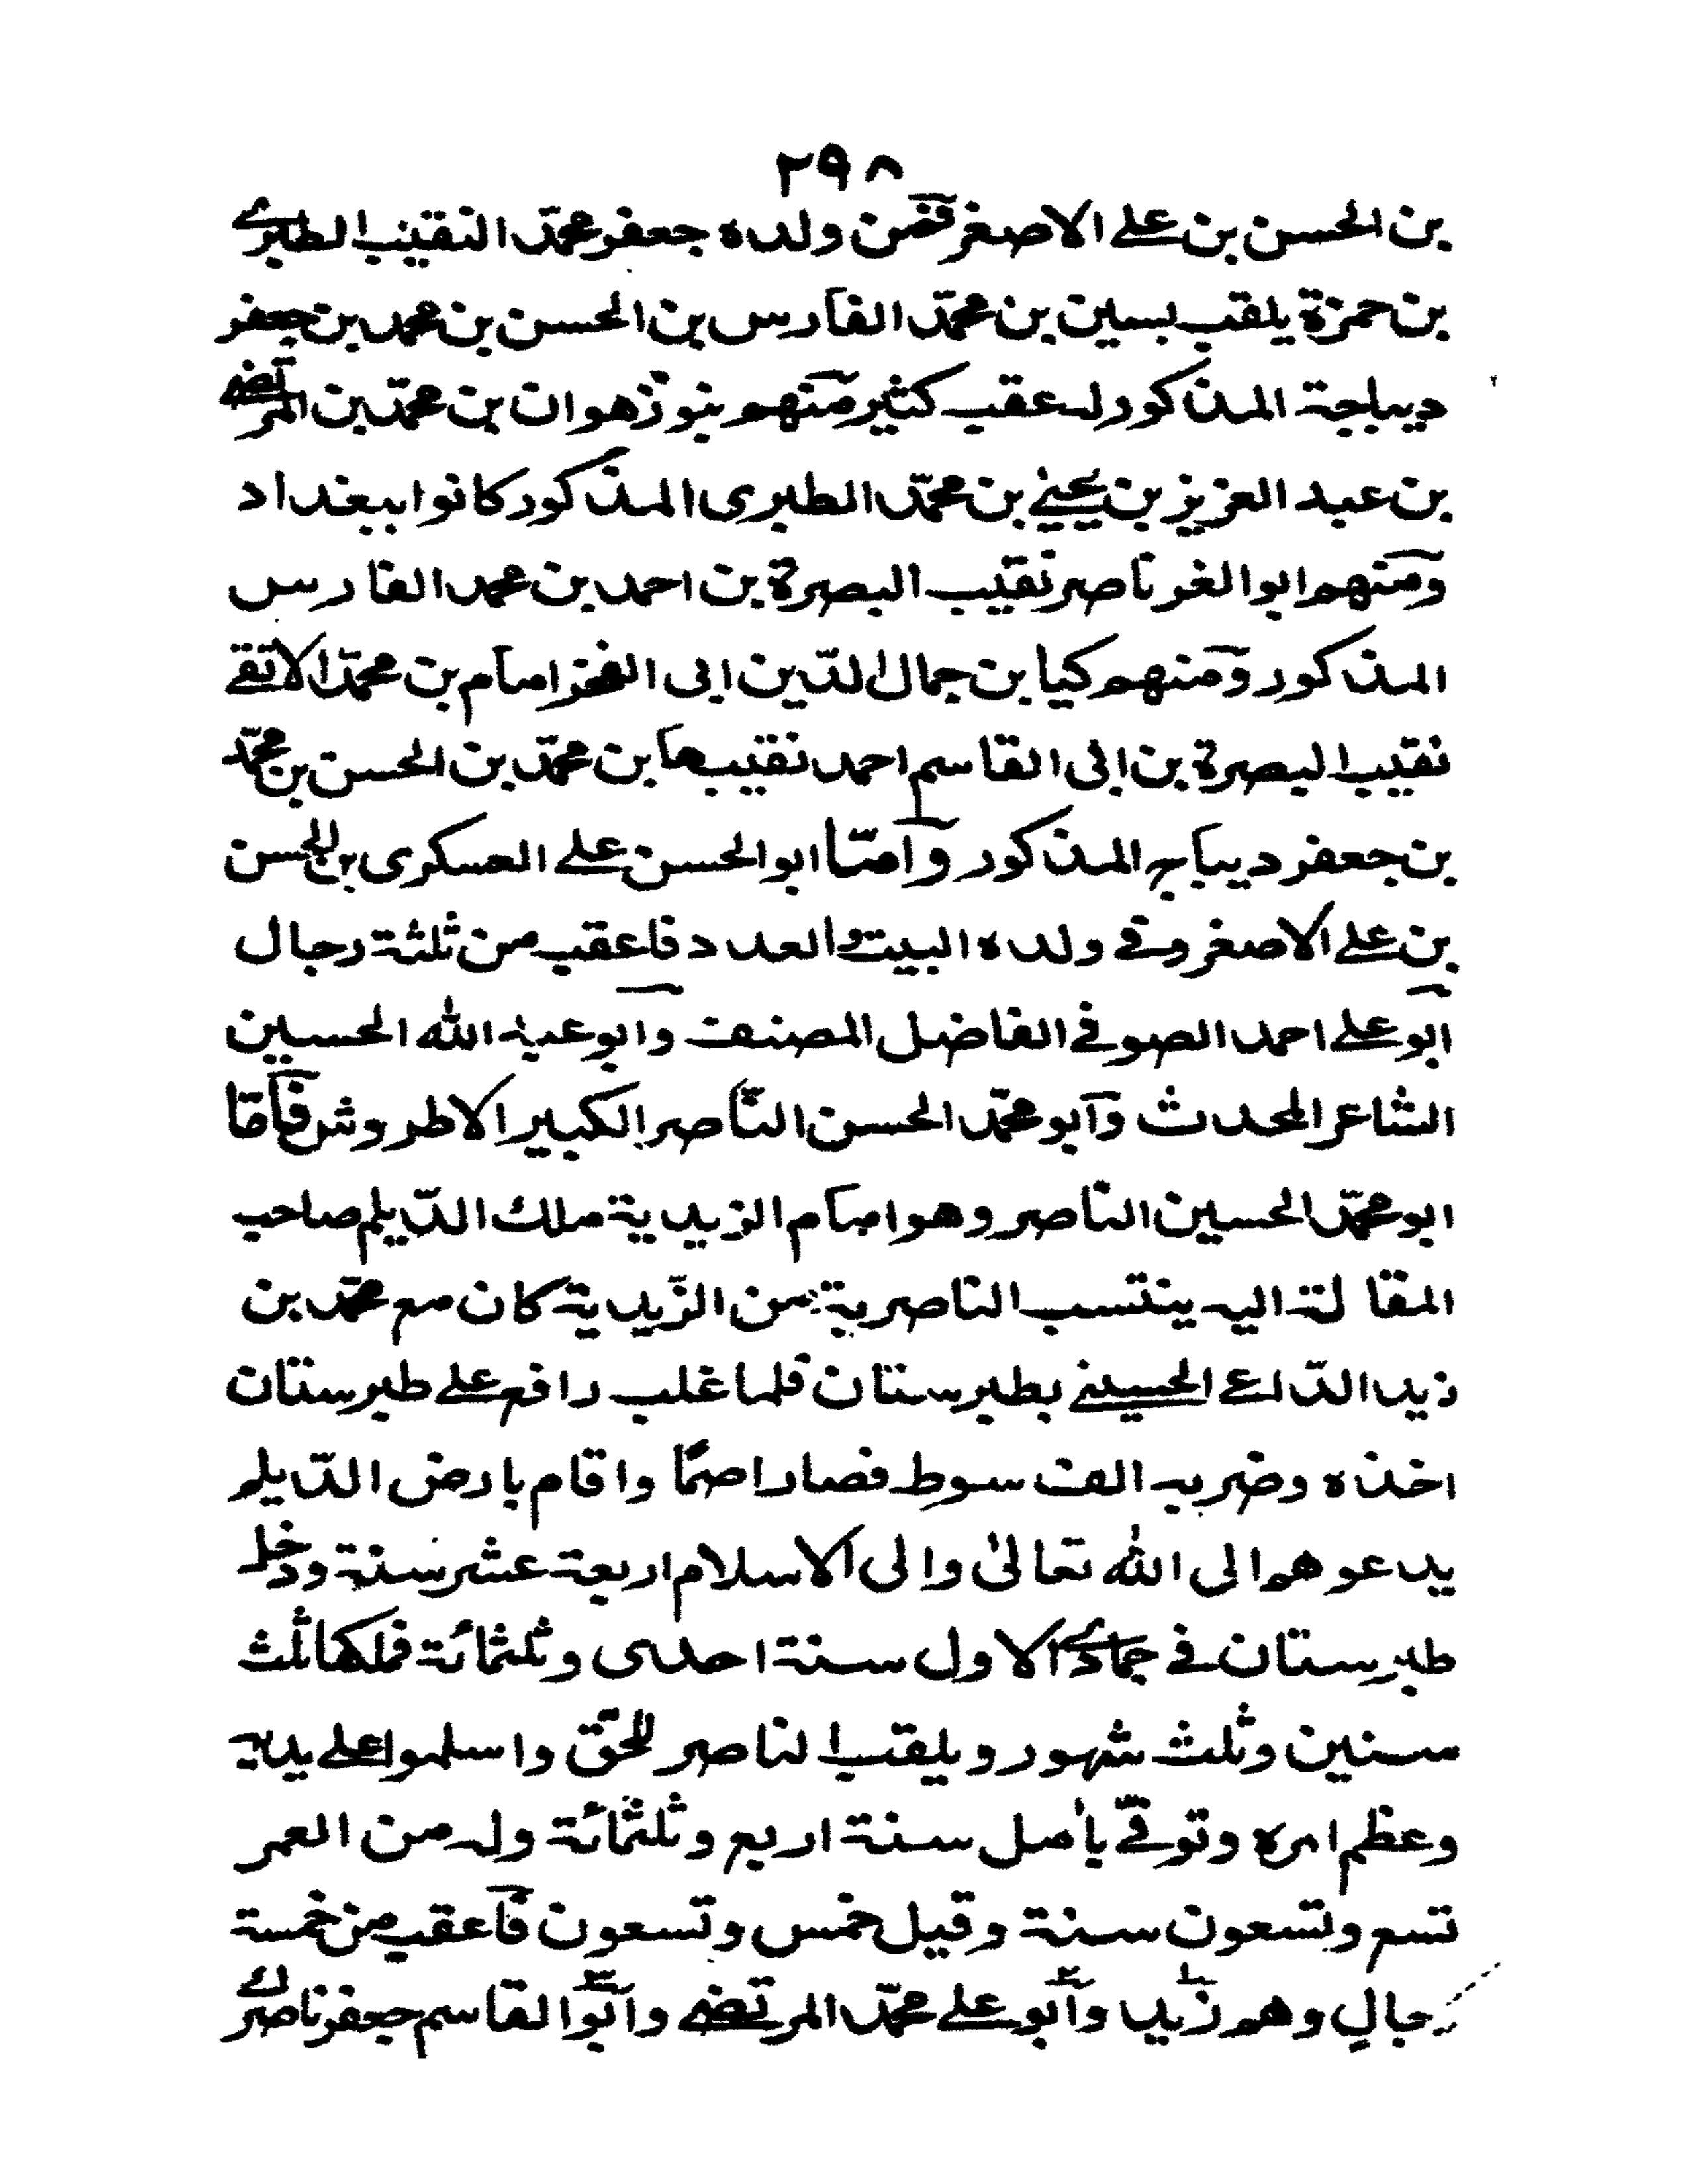 ٢٩٨
بن الحسن بن علے الاصغر فمن ولده جعفر محمّد النقيب الطبرے
بن حمزة يلقب بسين بن محمّد الفارس بن الحسن بن محمد بن جعفر
ديباجة المذكور له عقب كثير منهم بنو زهوان بن محمّد بن المرتضے
بن عبد العزيز بن يحيےٰ بن محمّد الطبرى المذكور كانوا ببغداد
ومنهم ابو الغر ناصر نقيب البصرة بن احمد بن محمد الفارس
المذكور ومنهم كيا بن جمال الدّين ابى الفخر امام بن محمّد الاتقے
نقيب البصرة بن ابى القاسم احمد نقيبها بن محمّد بن الحسن بن محمّد
بن جعفر ديباجه المذكور وامّا ابو الحسن علے العسكرى بن الحسن
بن علے الاصغر وفے ولده البيت والعدد فاعقب من ثلثة رجال
ابو علے احمد الصوفے الفاضل المصنف وابو عبد الله الحسين
الشاعر المحدث وآبو محمّد الحسن النّاصر الكبير الاطروش فآمّا
ابو محمّد الحسين الناصر وهو امام الزيدية ملك الدّيلم صاحب
المقالة اليه ينتسب الناصرية من الزّيدية كان مع محمّد بن
زيد الدّاعے الحسينے بطبرستان فلما غلب رافع علے طبرستان
اخذه وضربه الف سوط فصار اصمًّا واقام بارض الدّيلم
يدعوهم الى الله تعالىٰ والى الاسلام اربعة عشر سنة ودخل
طبرستان فے جمادے الاول سنة احدى وثلثمائة فملكها ثلث
سنين وثلث شهور ويلقب الناصر للحقّ واسلموا علے يديه
وعظم امره وتوفّے بآمل سنة اربع وثلثمائة وله من العمر
تسع وتسعون سنة وقيل خمس وتسعون فآعقب من خمسة
رجال وهم زيد وآبو علے محمّد المرتضے وآبو القاسم جعفر ناصرك